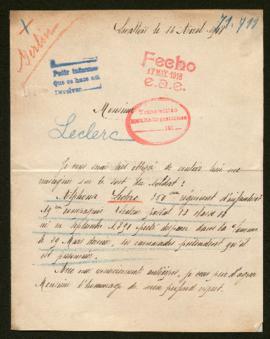 Levallois le 14 Avril 1918
71.799
Berlin
Pedir informes
Que se hace así
Devolver
Fecho
17 MAY. 1918
Monsieur
Leclerc
Je vous serais très obligé de vouloir bien me
renseigner sur le sort du Soldat :
Alphonse Leclerc 350me régiment d'infanterie
19me compagnie Secteur postal 72
né en Septembre 1891 porté disparu dans la
le 30 Mars dernier, ses camarades prétendent qu'il
est prisonnier.
Avec mes remerciements anticipés, je vous prie d'agréer
Monsieur l'hommage de mon profond respect.